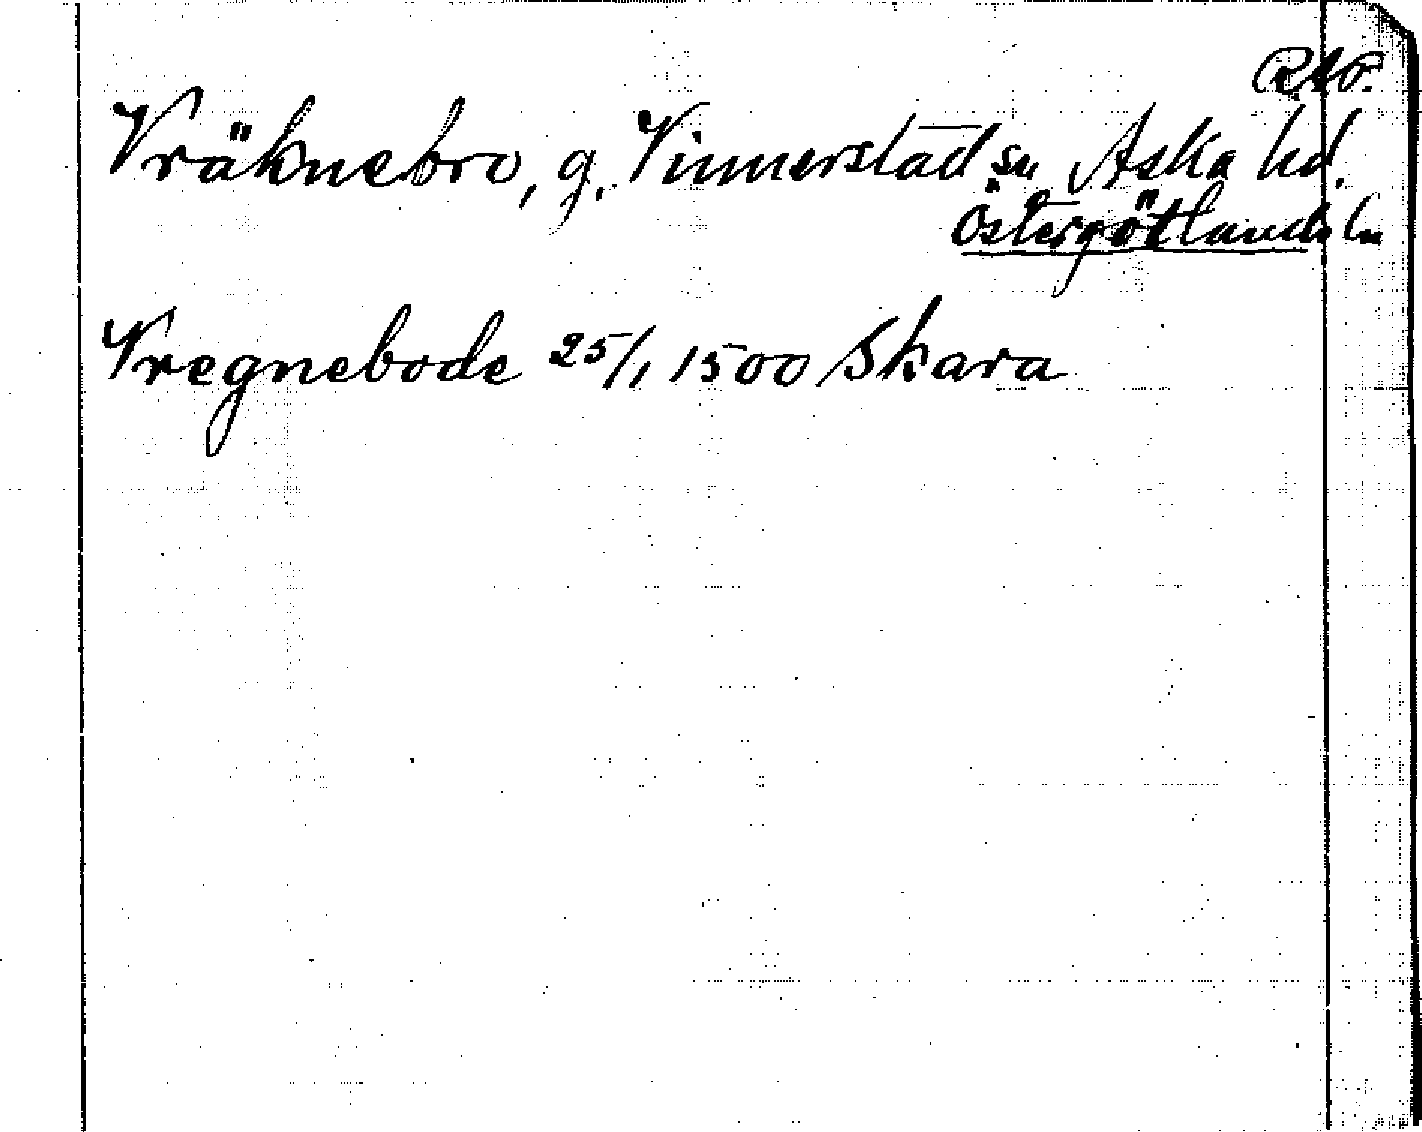 RAP.
Vräknebro, g. Vinnerstad sn Aska hd.
Östergötlands ln
Vregnebode 25/1 1500 Skara